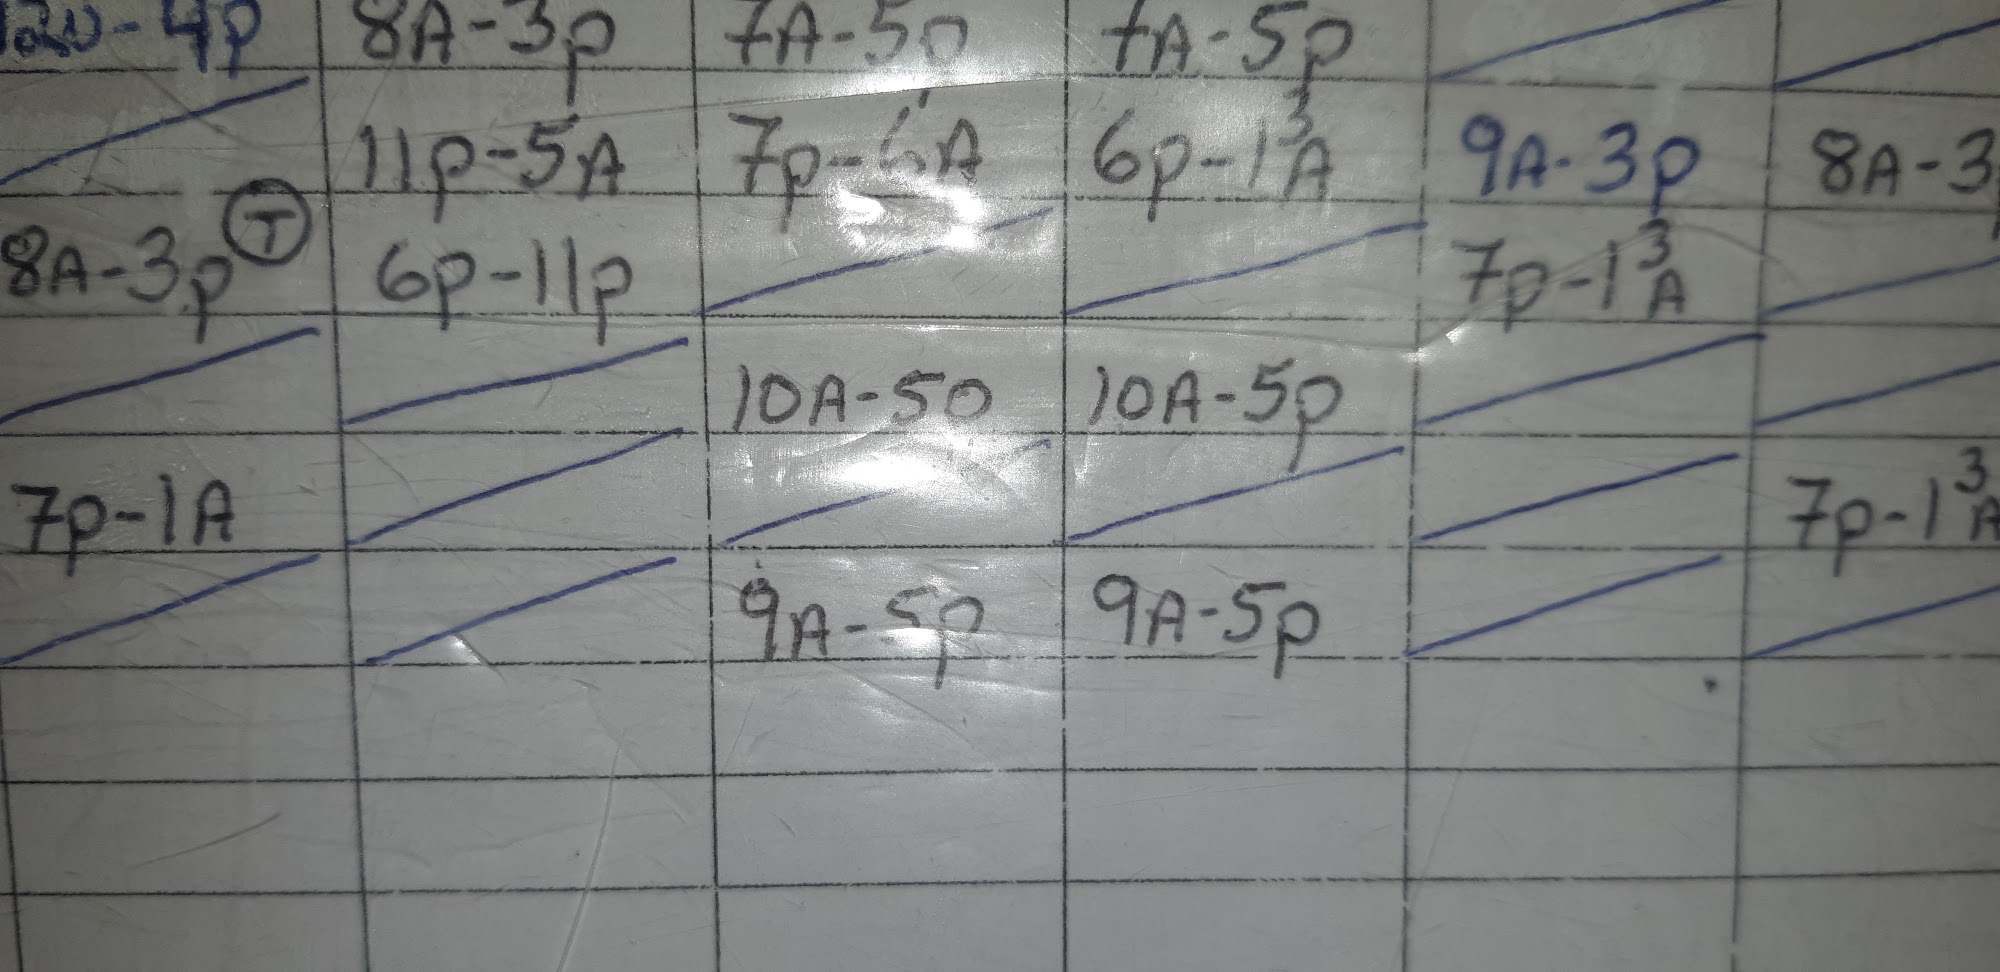 8A-3p 7A-5p 7A-5p
11p-5A 7p-6A 6p-1³A 9A-3p 8A-3
8A-3p T 6p-11p 7p-1³A
10A-5p 10A-5p
7p-1A 7p-1³A
9A-5p 9A-5p